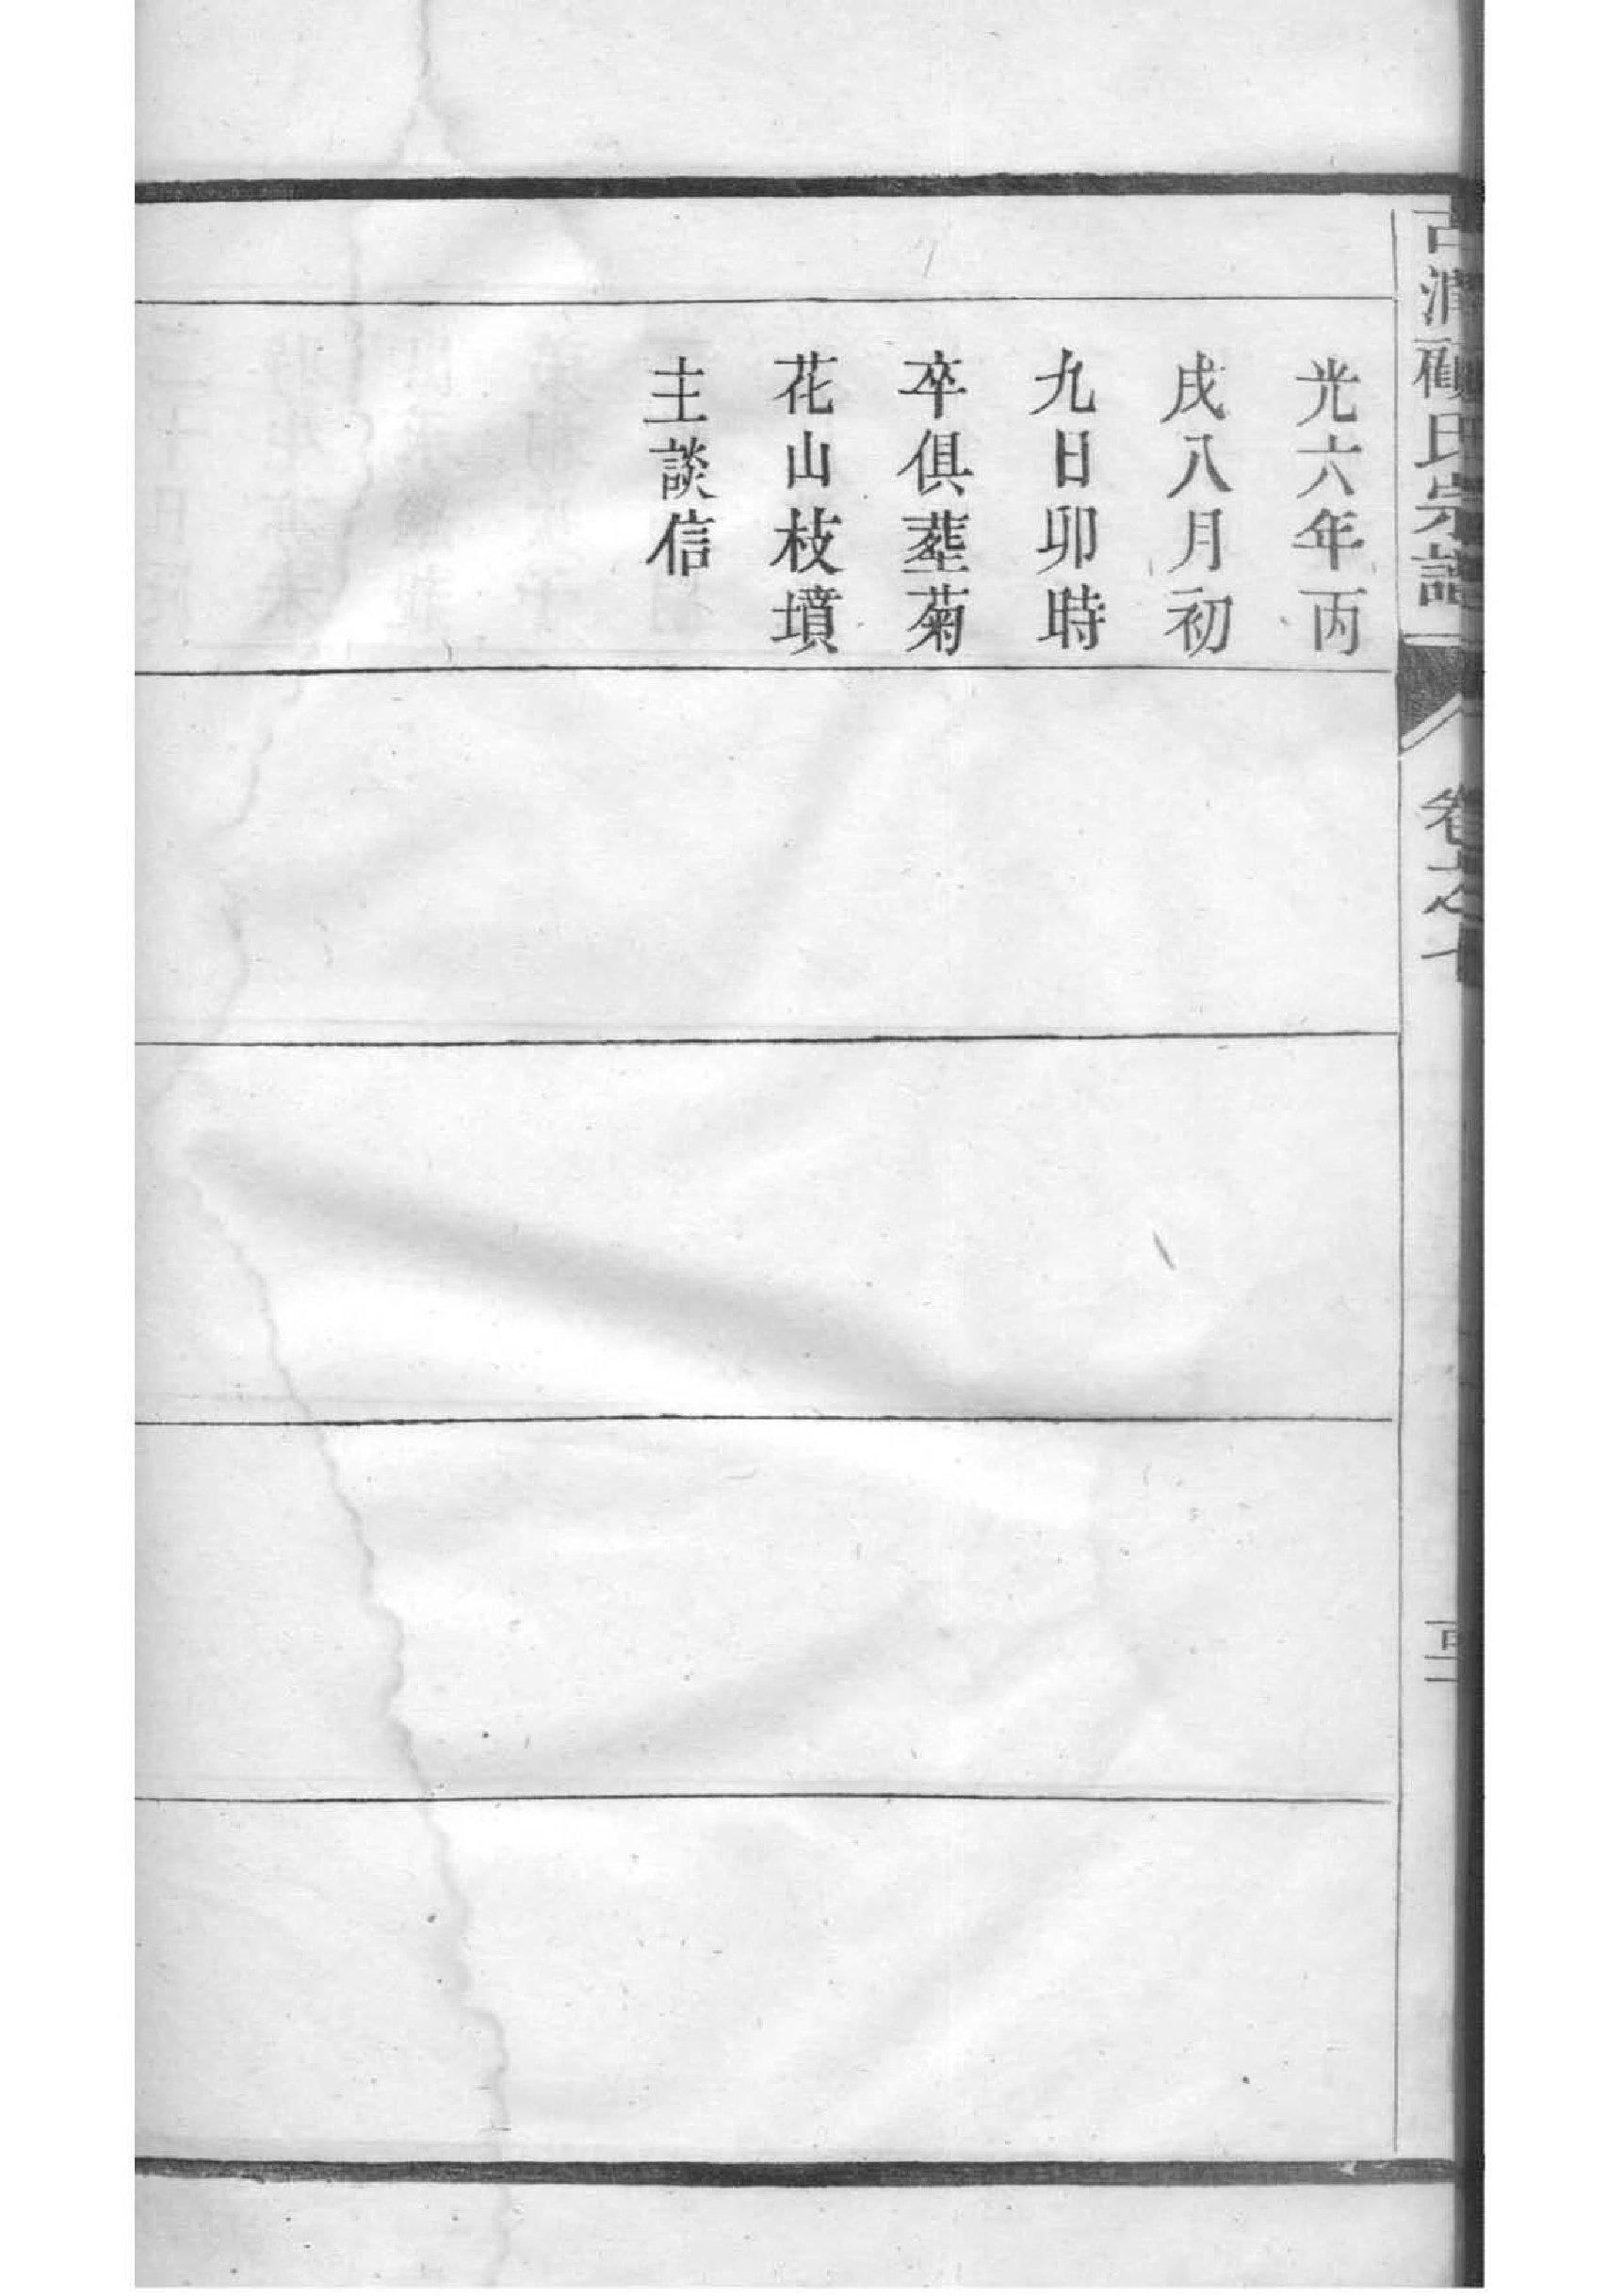 古潤顧氏宗譜
卷之七
光六年丙
戌八月初
九日卯時
卒俱塟菊
花山枝墳
主談信